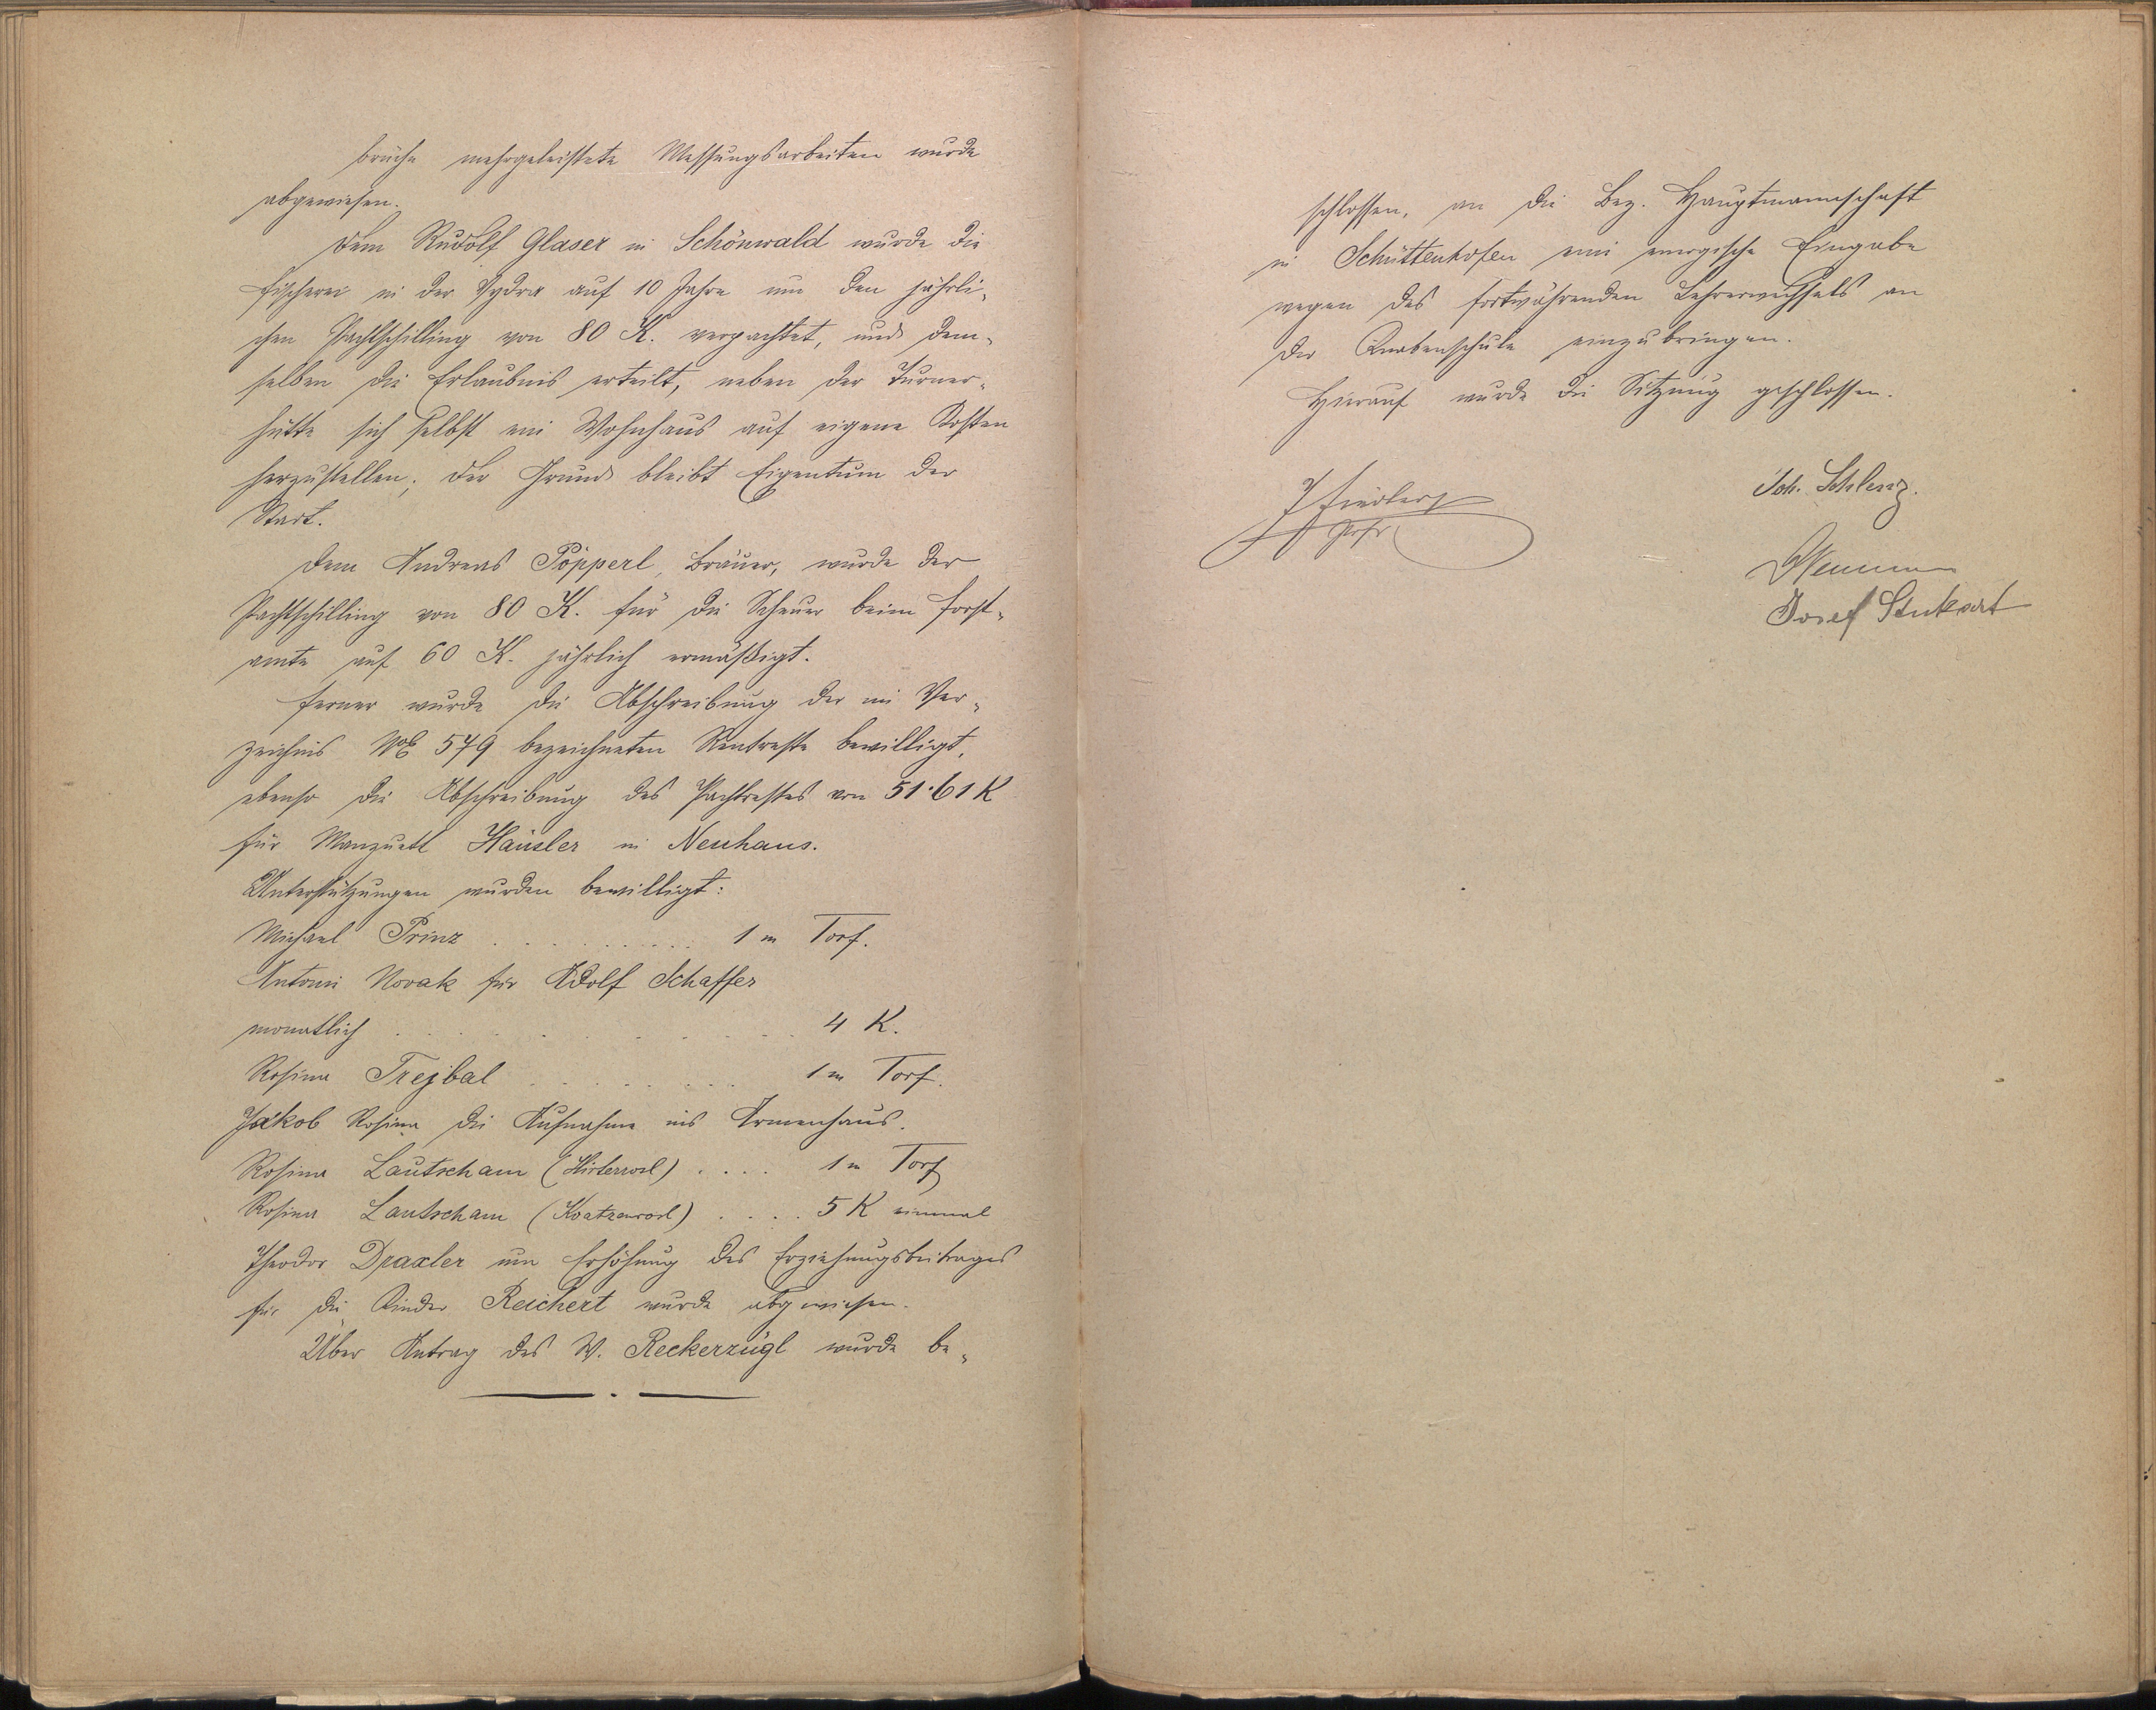 brüche mehrgeleistete Messungsarbeiten wurde
abgewiesen.
Dem Rudolf Glaser in Schönwald wurde die
Fischerei in der Vydra auf 10 Jahre um den jährli-
chen Pachtschilling von 80 K. verpachtet, und dem-
selben die Erlaubnis erteilt, neben der Turner-
hütte sich selbst ein Wohnhaus auf eigene Kosten
herzustellen; der Grund bleibt Eigentum der
Stadt.
Dem Andreas Pöpperl, Bräuer, wurde der
Pachtschilling von 80 K. für die Scheuer beim Forst-
amte auf 60 K. jährlich ermäßigt.
Ferner wurde die Abschreibung der im Ver-
zeichnis 579 bezeichneten Rentreste bewilligt,
ebenso die Abschreibung des Pachtrestes von 51·61 K
für Manzuetl Häusler in Neuhaus.
Unterstützungen wurden bewilligt:
Michael Prinz . . . . . . . . . . 1 m Torf.
Antoni Novak für Adolf Schaffer
monatlich . . . . . . . . . 4 K.
Rosina Trejbal . . . . . . . . 1 m Torf.
Jakob Rosina die Aufnahme ins Armenhaus.
Rosina Lautscham . . . . 1 m Torf
Rosina Lautscham . . . . 5 K einmal
Theodor Draxler um Erhöhung des Erziehungsbeitrages
für die Kinder Reichert wurde abgewiesen.
Über Antrag des W. Reckerzügl wurde be-
schlossen, an die Bez. Hauptmannschaft
in Schüttenhofen eine energische Eingabe
wegen des fortwährenden Lehrerwechsels an
der Knabenschule einzubringen.
Hierauf wurde die Sitzung geschlossen.
Joh. Schlenz.
J Fiedler
Josef